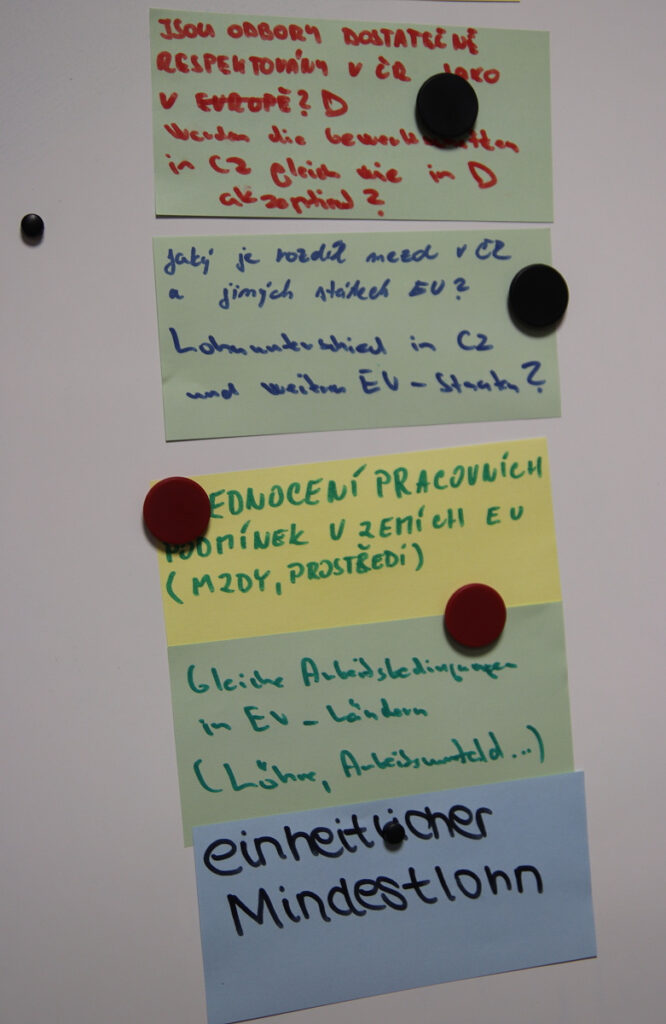 JSOU ODBORY DOSTATEČNĚ
RESPEKTOVÁNY V ČR JAKO
V EUROPĚ? D
Werden die
in CZ gleich wie in D
akzeptiert?
Jaký je rozdíl mezd v ČR
a jiných státech EU?
Lohnunterschied in CZ
und weitren EU-Staaten?
EDNOCENÍ PRACOVNÍCH
PODMÍNEK V ZEMÍCH EU
(MZDY, PROSTŘEDÍ)
Gleiche Arbeitsbedingungen
in EU-Ländern
(Löhne, Arbeitsumfeld...)
einheitlicher
Mindestlohn